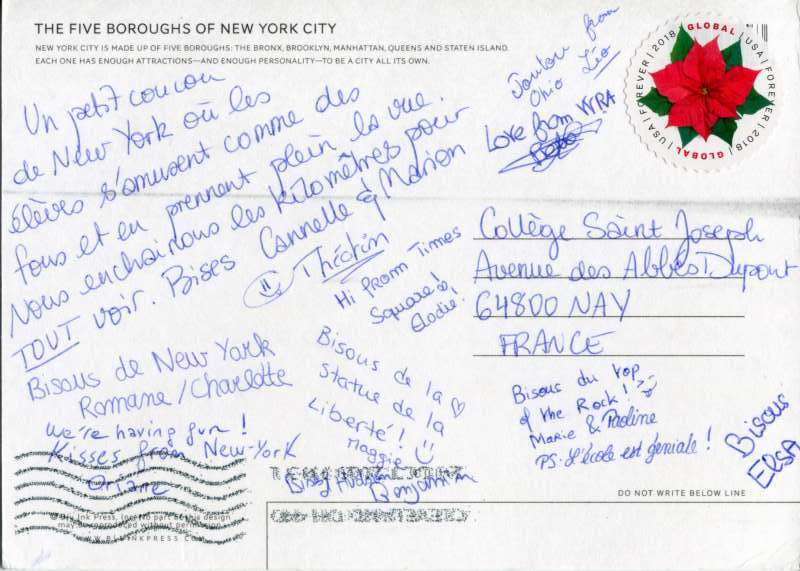 THE FIVE BOROUGHS OF NEW YORK CITY
NEW YORK CITY IS MADE UP OF FIVE BOROUGHS: THE BRONX, BROOKLYN, MANHATTAN, QUEENS AND STATEN ISLAND.
EACH ONE HAS ENOUGH ATTRACTIONS—AND ENOUGH PERSONALITY—TO BE A CITY ALL ITS OWN.
Un petit coucou
de New York où les
élèves s'amusent comme des
fous et en prennent plein la vue.
Nous enchainons les kilomètres pour
TOUT voir. Bises Cannelle & Marion
Théotin
Bisous de New York
Romane/Charlotte
We're having fun!
Kisses from New-York
Oriane
Hi From Times
Square!
Elodie!
Bisous de la
Statue de la
Liberté!
Maggie
Benjamin
from
Ohio Léo
Love from
FOREVER | 2018 | GLOBAL | USA | FOREVER | 2018 | GLOBAL | USA
Collège Saint Joseph
Avenue des Abbés Dupont
64800 NAY
FRANCE
Bisous du top
of the Rock!
Marie & Pauline
PS: L'école est géniale!
Bisous
ELSA
DO NOT WRITE BELOW LINE
No part of this design
may be reproduced without permission.